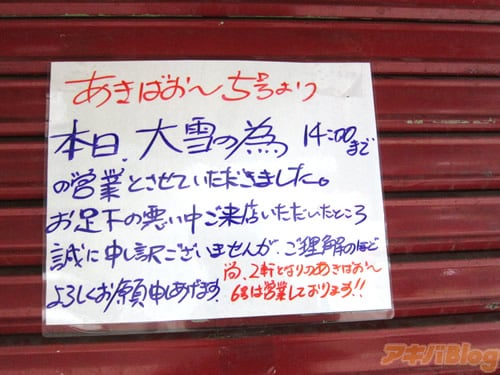 あきばお～ 5号より
本日、大雪の為 14:00まで
の営業とさせていただきました。
お足下の悪い中ご来店いただいたところ
誠に申し訳ございませんが、ご理解のほど
よろしくお願い申しあげます。
尚、2軒となりのあきばお～
6号は営業しております!!
アキバBlog